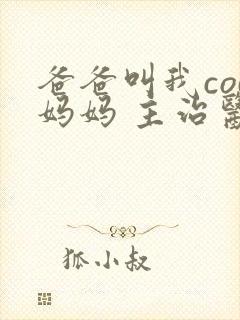 爸爸叫我co
妈妈 主治醫
狐小叔